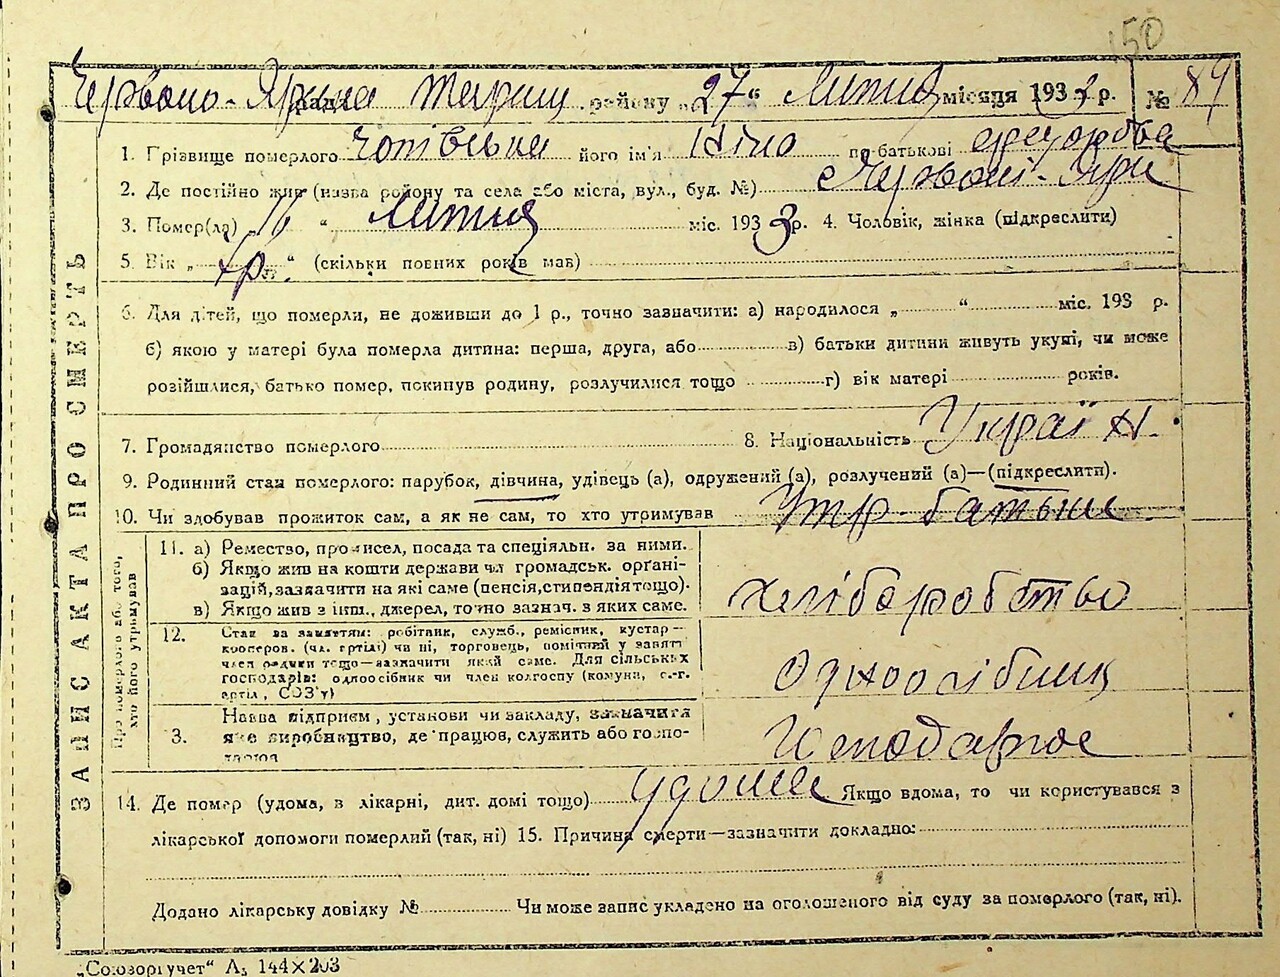 150
Червоно-Ярська рада Таращ. району „27“ Лютня місяця 1933 р. № 84
1. Грізвище померлого його ім'я Ніно по батькові Федорова
2. Де постійно жив (назва району та села або міста, вул., буд. №) с Червоні-Яри
3. Помер(ла) „16“ Лютня міс. 1933 р. 4. Чоловік, жінка (підкреслити)
5. Вік „ р. “ (скільки повних років мав)
6. Для дітей, що померли, не доживши до 1 р., точно зазначити: а) народилося „ “ міс. 193 р.
б) якою у матері була померла дитина: перша, друга, або в) батьки дитини живуть укупі, чи може
розійшлися, батько помер, покинув родину, розлучилися тощо г) вік матері років.
7. Громадянство померлого 8. Національність Україн.
9. Родинний стан померлого: парубок, дівчина, удівець (а), одружений (а), розлучений (а)—(підкреслити).
10. Чи здобував прожиток сам, а як не сам, то хто утримував Утр. батьки
ЗАПИС АКТА ПРО СМЕРТЬ
Про померлого або того, хто його утримував
11. а) Ремество, промисел, посада та спеціяльн. за ними.
б) Якщо жив на кошти держави чи громадськ. орґані-
зацій, зазначити на які саме (пенсія, стипендія тощо).
в) Якщо жив з інш., джерел, точно зазнач. з яких саме.
хліборобство
12. Стан за заняттям: робітник, служб., ремісник, кустар—
кооперов. (чл. артілі) чи ні, торговець, помічний у занятт
член родини тощо—зазначити який саме. Для сільських
господарів: одноосібник чи член колгоспу (комуни, с.-г.
артіл, СОЗ'у)
Одноосібниц
3. Назва підприєм, установи чи закладу, зазначити
яке виробництво, де працює, служить або госпо-
дарює
Господарює
14. Де помер (удома, в лікарні, дит. домі тощо) удома Якщо вдома, то чи користувався з
лікарської допомоги померлий (так, ні) 15. Причина смерти—зазначити докладно:
Додано лікарську довідку № Чи може запис укладено на оголошеного від суду за померлого (так, ні).
„Союзоргучет“ А₅ 144×203